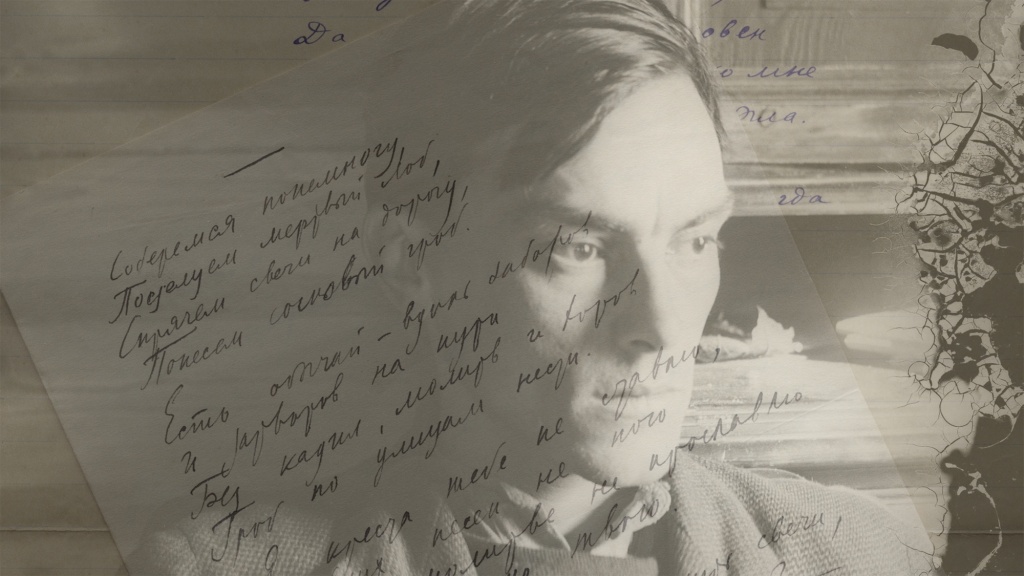 Да
овен
о мне
гда
—
Соберемся понемногу,
Поцелуем мертвый лоб,
Спрячем свечи на дорогу,
Понесем сосновый гроб.
Есть обычай – вдоль заборов
И на пути
Без кадил, молитв и хоров
Гроб по улицам нести.
Я креста тебе не ставлю,
песен не пого
не прославлю
твою.
свечи,